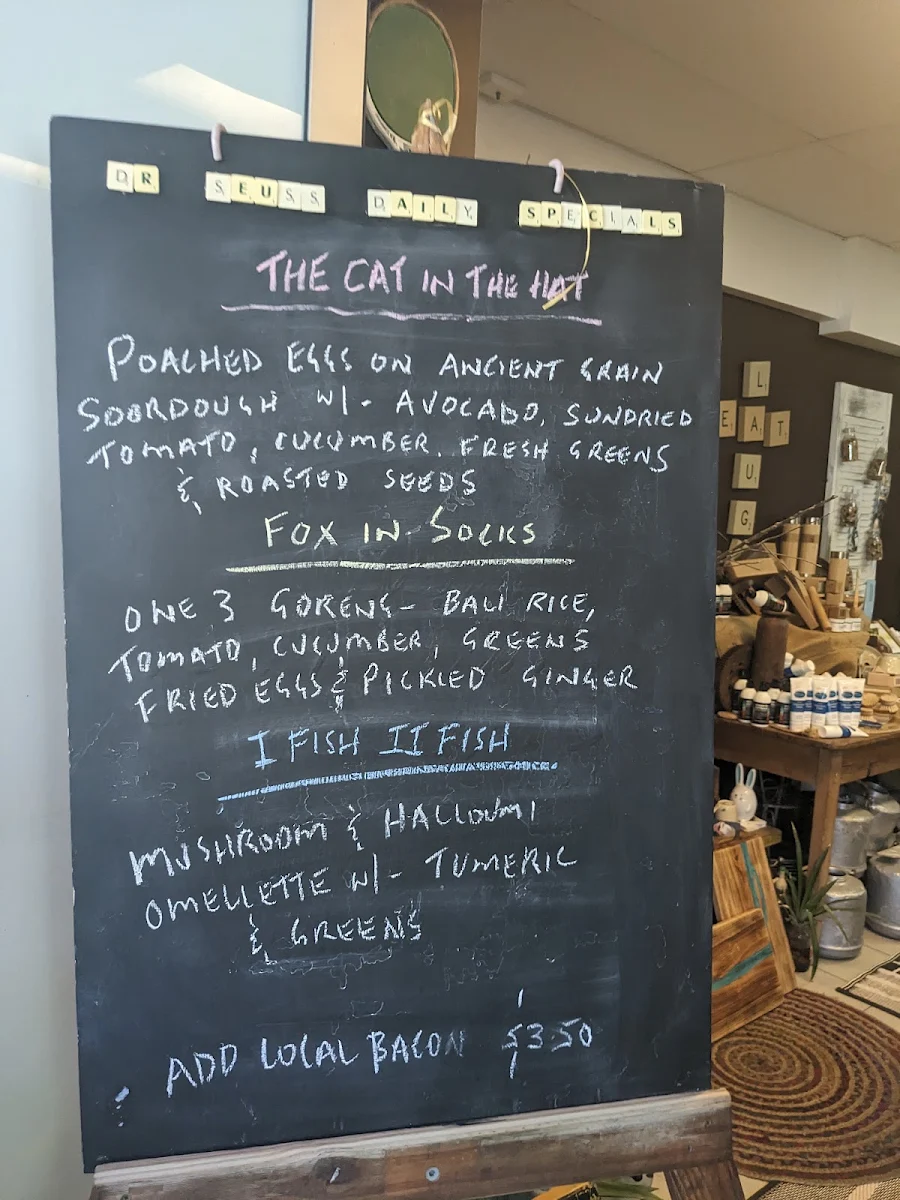 DR SEUSS DAILY SPECIALS
THE CAT IN THE HAT
POACHED EGGS ON ANCIENT GRAIN
SOORDOUGH W/- AVOCADO, SUNDRIED
TOMATO, CUCUMBER. FRESH GREENS
& ROASTED SEEDS
FOX IN SOCKS
ONE 3 GORENG - BALI RICE,
TOMATO, CUCUMBER, GREENS
FRIED EGGS & PICKLED GINGER
I FISH II FISH
MUSHROOM & HALLOUMI
OMELLETTE W/- TUMERIC
& GREENS
ADD LOCAL BACON $3.50
L
EAT
U
G